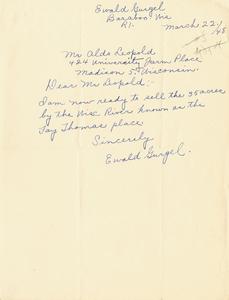 Ewald Gurgel
Baraboo Wis
R1.
March 22/48
Mr Aldo Leopold
424 University Farm Place
Madison 5. Wisconsin.
Dear Mr Leopold:-
I am now ready to sell the 35 acres
by the Wisc River known as the
Jay Thomas place
Sincerely
Ewald Gurgel.